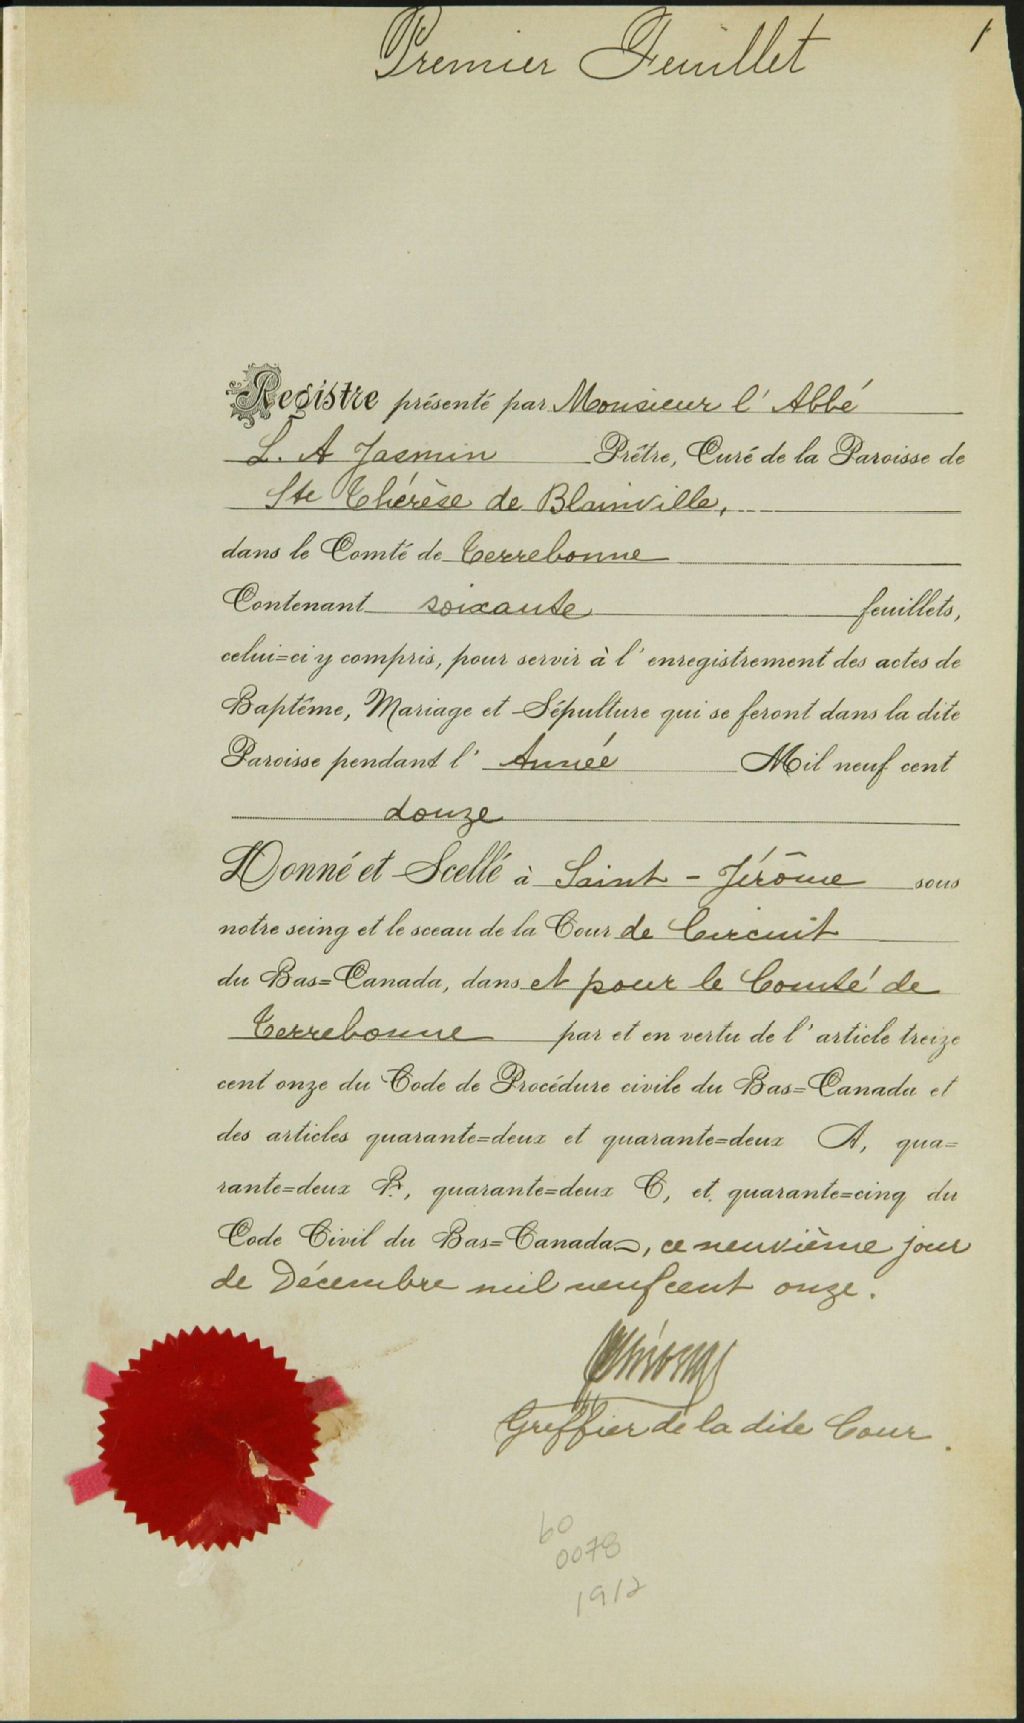 Premier Feuillet
1
Registre présenté par Monsieur l' Abbé
L. A Jasmin Prêtre, Curé de la Paroisse de
Ste Thérèse de Blainville,
dans le Comté de Terrebonne
Contenant soixante feuillets,
celui=ci y compris, pour servir à l' enregistrement des actes de
Baptême, Mariage et Sépulture qui se feront dans la dite
Paroisse pendant l' Année Mil neuf cent
douze
Donné et Scellé à Saint - Jérôme sous
notre seing et le sceau de la Cour de Circuit
du Bas=Canada, dans et pour le Comté de
Terrebonne par et en vertu de l' article treize
cent onze du Code de Procédure civile du Bas=Canada et
des articles quarante=deux et quarante=deux A, qua=
rante=deux B, quarante=deux C, et quarante=cinq du
Code Civil du Bas=Canada, ce neuvième jour
de Décembre mil neuf cent onze.
Greffier de la dite Cour.
60
0078
1912